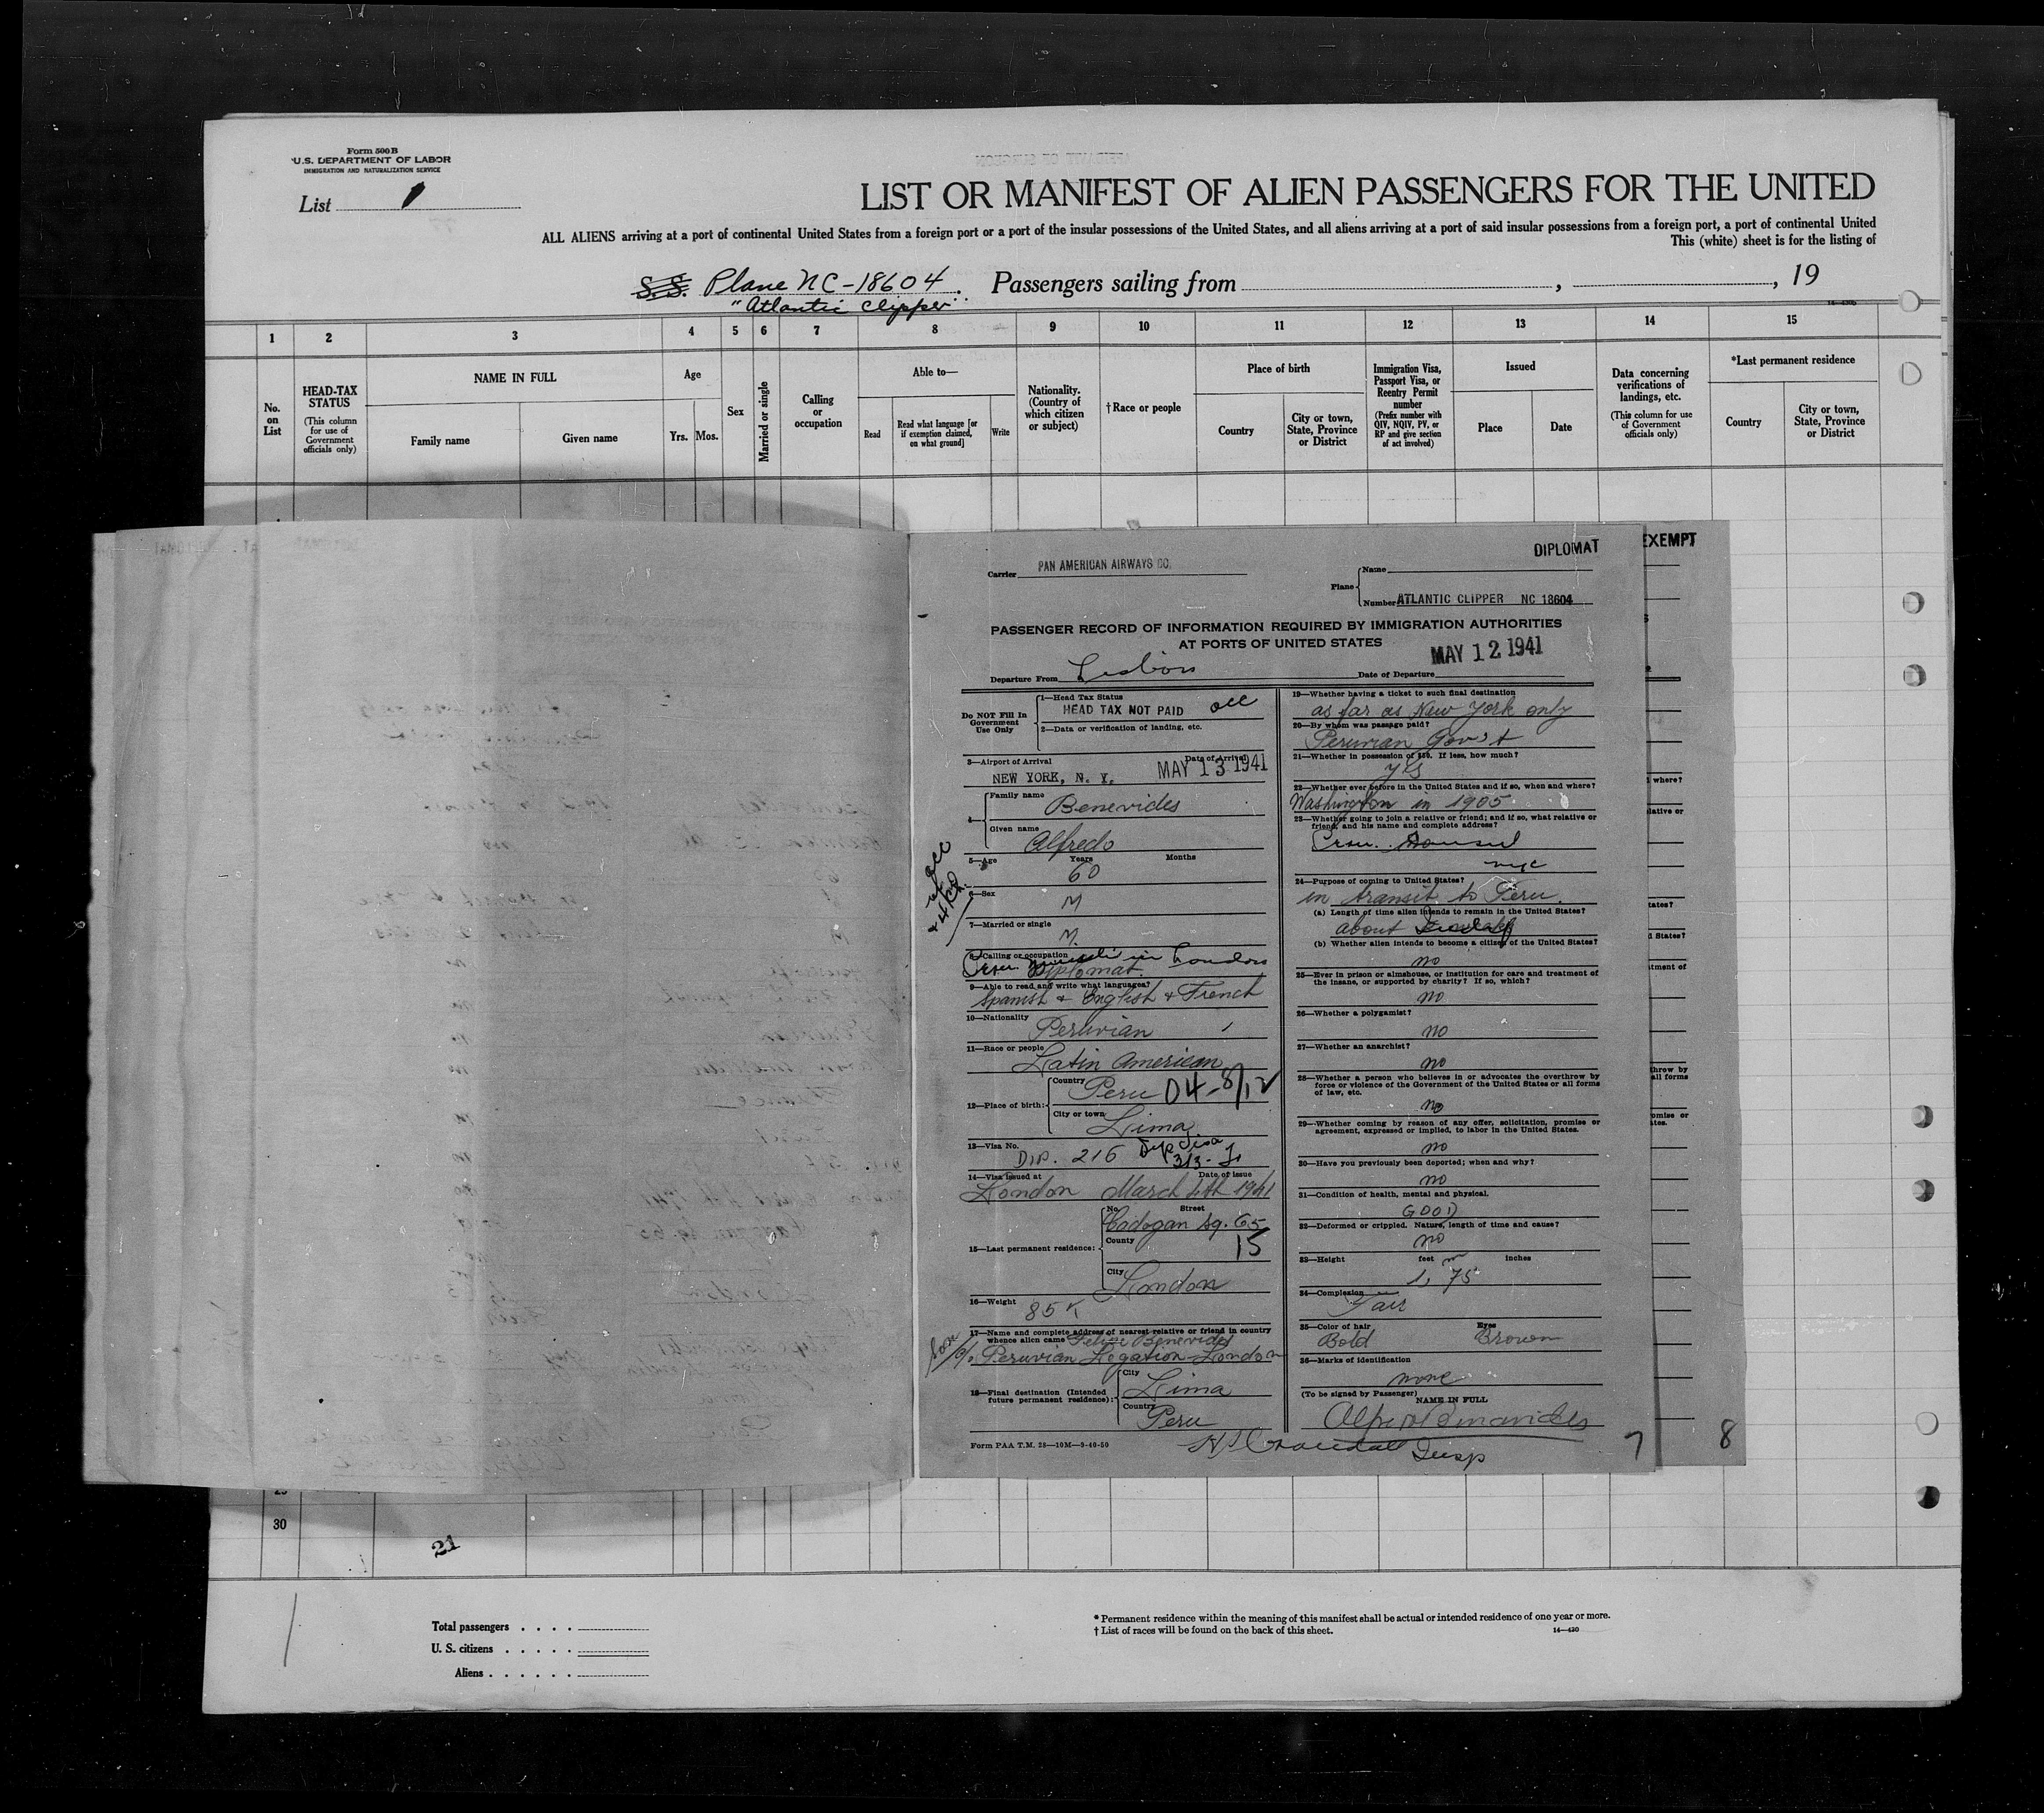 Form 500B
U.S. DEPARTMENT OF LABOR
IMMIGRATION AND NATURALIZATION SERVICE
List 1
LIST OR MANIFEST OF ALIEN PASSENGERS FOR THE UNITED
ALL ALIENS arriving at a port of continental United States from a foreign port or a port of the insular possessions of the United States, and all aliens arriving at a port of said insular possessions from a foreign port, a port of continental United
This (white) sheet is for the listing of
S.S. Plane NC-18604. Passengers sailing from , , 19
"Atlantic Clipper"
1 2 3 4 5 6 7 8 9 10 11 12 13 14 15
No. on List
HEAD-TAX STATUS
(This column for use of Government officials only)
NAME IN FULL
Family name
Given name
Age
Yrs. Mos.
Sex
Married or single
Calling or occupation
Able to—
Read
Read what language [or if exemption claimed, on what ground]
Write
Nationality. (Country of which citizen or subject)
†Race or people
Place of birth
Country
City or town, State, Province or District
Immigration Visa, Passport Visa, or Reentry Permit number
(Prefix number with QIV, NQIV, PV, or RP and give section of act involved)
Issued
Place
Date
Data concerning verifications of landings, etc.
(This column for use of Government officials only)
*Last permanent residence
Country
City or town, State, Province or District
DIPLOMAT
EXEMPT
Carrier PAN AMERICAN AIRWAYS CO.
Plane
Name
Number ATLANTIC CLIPPER NC 18604
PASSENGER RECORD OF INFORMATION REQUIRED BY IMMIGRATION AUTHORITIES
AT PORTS OF UNITED STATES
Departure From Lisbon
Date of Departure MAY 12 1941
Do NOT Fill In Government Use Only
1—Head Tax Status
HEAD TAX NOT PAID
2—Data or verification of landing, etc.
3—Airport of Arrival Date of Arrival
NEW YORK, N. Y. MAY 13 1941
4—
Family name
Benevides
Given name
Alfredo
5—Age Years Months
60
6—Sex
M
7—Married or single
M.
8—Calling or occupation
in London
Diplomat.
9—Able to read and write what languages?
Spanish + English + French
10—Nationality
Peruvian
11—Race or people
Latin American
12—Place of birth:
Country
Peru 04-8/12
City or town
Lima
13—Visa No.
Dip. 216 Dip Visa
3/3-
14—Visa issued at Date of issue
London March 4th 1941
15—Last permanent residence:
No. Street
Cadogan Sq. 65
County
15
City
London
16—Weight
85 K
17—Name and complete address of nearest relative or friend in country whence alien came
Son
Felipe Benevides
c/o Peruvian Legation London
18—Final destination (Intended future permanent residence):
City
Lima
Country
Peru
Form PAA T.M. 28—10M—9-40-50
19—Whether having a ticket to such final destination
as far as New York only
20—By whom was passage paid?
Peruvian Gov't
21—Whether in possession of $50. If less, how much?
yes
22—Whether ever before in the United States and if so, when and where?
Washington in 1905
23—Whether going to join a relative or friend; and if so, what relative or friend, and his name and complete address?
nyc
24—Purpose of coming to United States?
in transit to Peru.
(a) Length of time alien intends to remain in the United States?
about
(b) Whether alien intends to become a citizen of the United States?
no
25—Ever in prison or almshouse, or institution for care and treatment of the insane, or supported by charity? If so, which?
no
26—Whether a polygamist?
no
27—Whether an anarchist?
no
28—Whether a person who believes in or advocates the overthrow by force or violence of the Government of the United States or all forms of law, etc.
no
29—Whether coming by reason of any offer, solicitation, promise or agreement, expressed or implied, to labor in the United States.
no
30—Have you previously been deported; when and why?
no
31—Condition of health, mental and physical.
GOOD
32—Deformed or crippled. Nature, length of time and cause?
no
33—Height feet m inches
1, 75
34—Complexion
Fair
35—Color of hair Eyes
Bold Brown
36—Marks of identification
none
(To be signed by Passenger)
NAME IN FULL
Insp
7
8
30
21
Total passengers
U. S. citizens
Aliens
* Permanent residence within the meaning of this manifest shall be actual or intended residence of one year or more.
† List of races will be found on the back of this sheet.
14—430